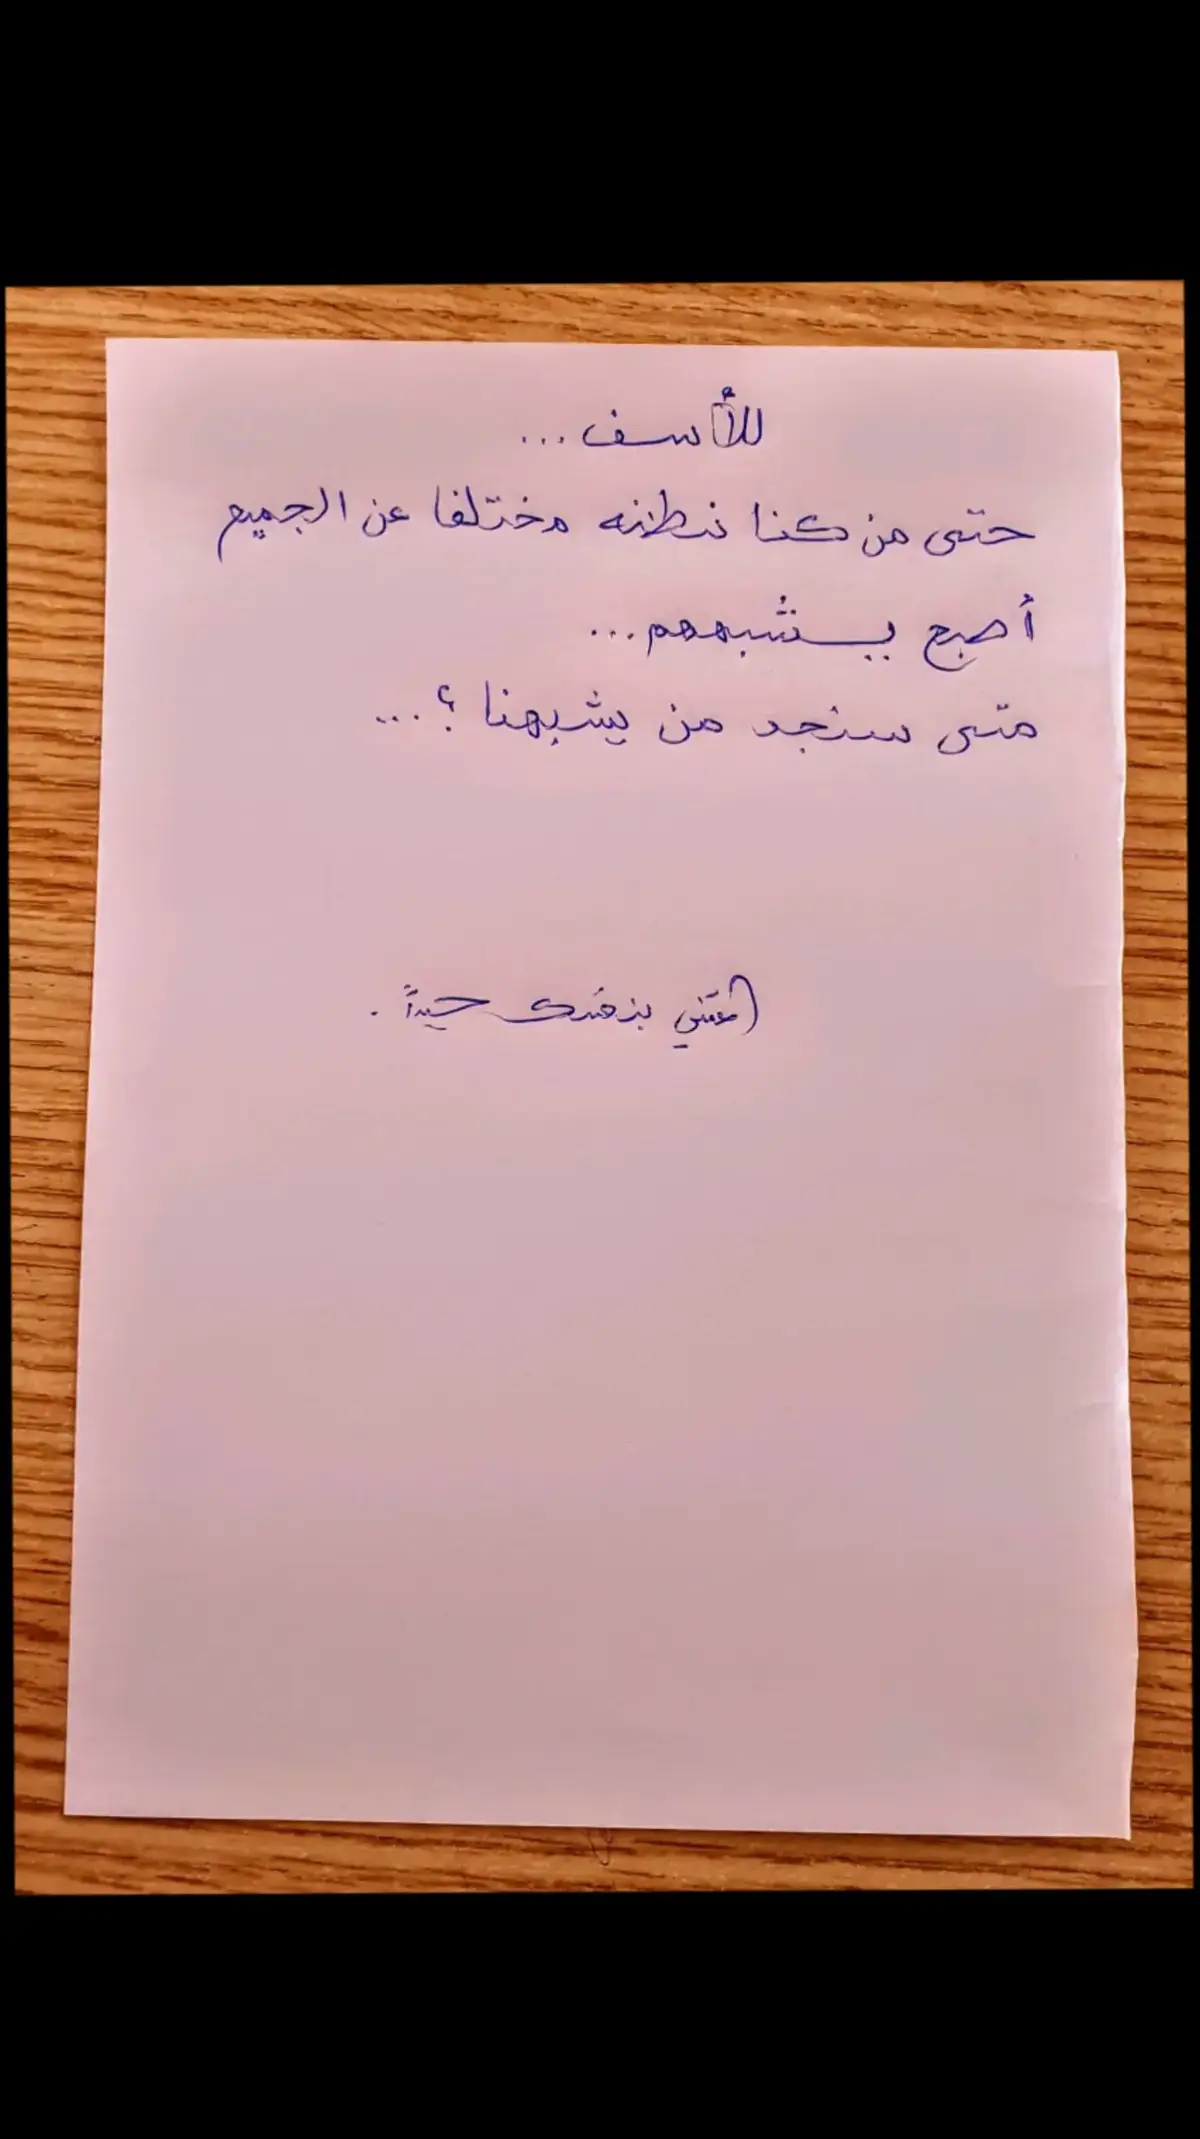 للأسف...
حتى من كنا نظنه مختلفا عن الجميع
أصبح يشبههم...
متى سنجد من يشبهنا ؟...
إعتني بنفسك جيداً .